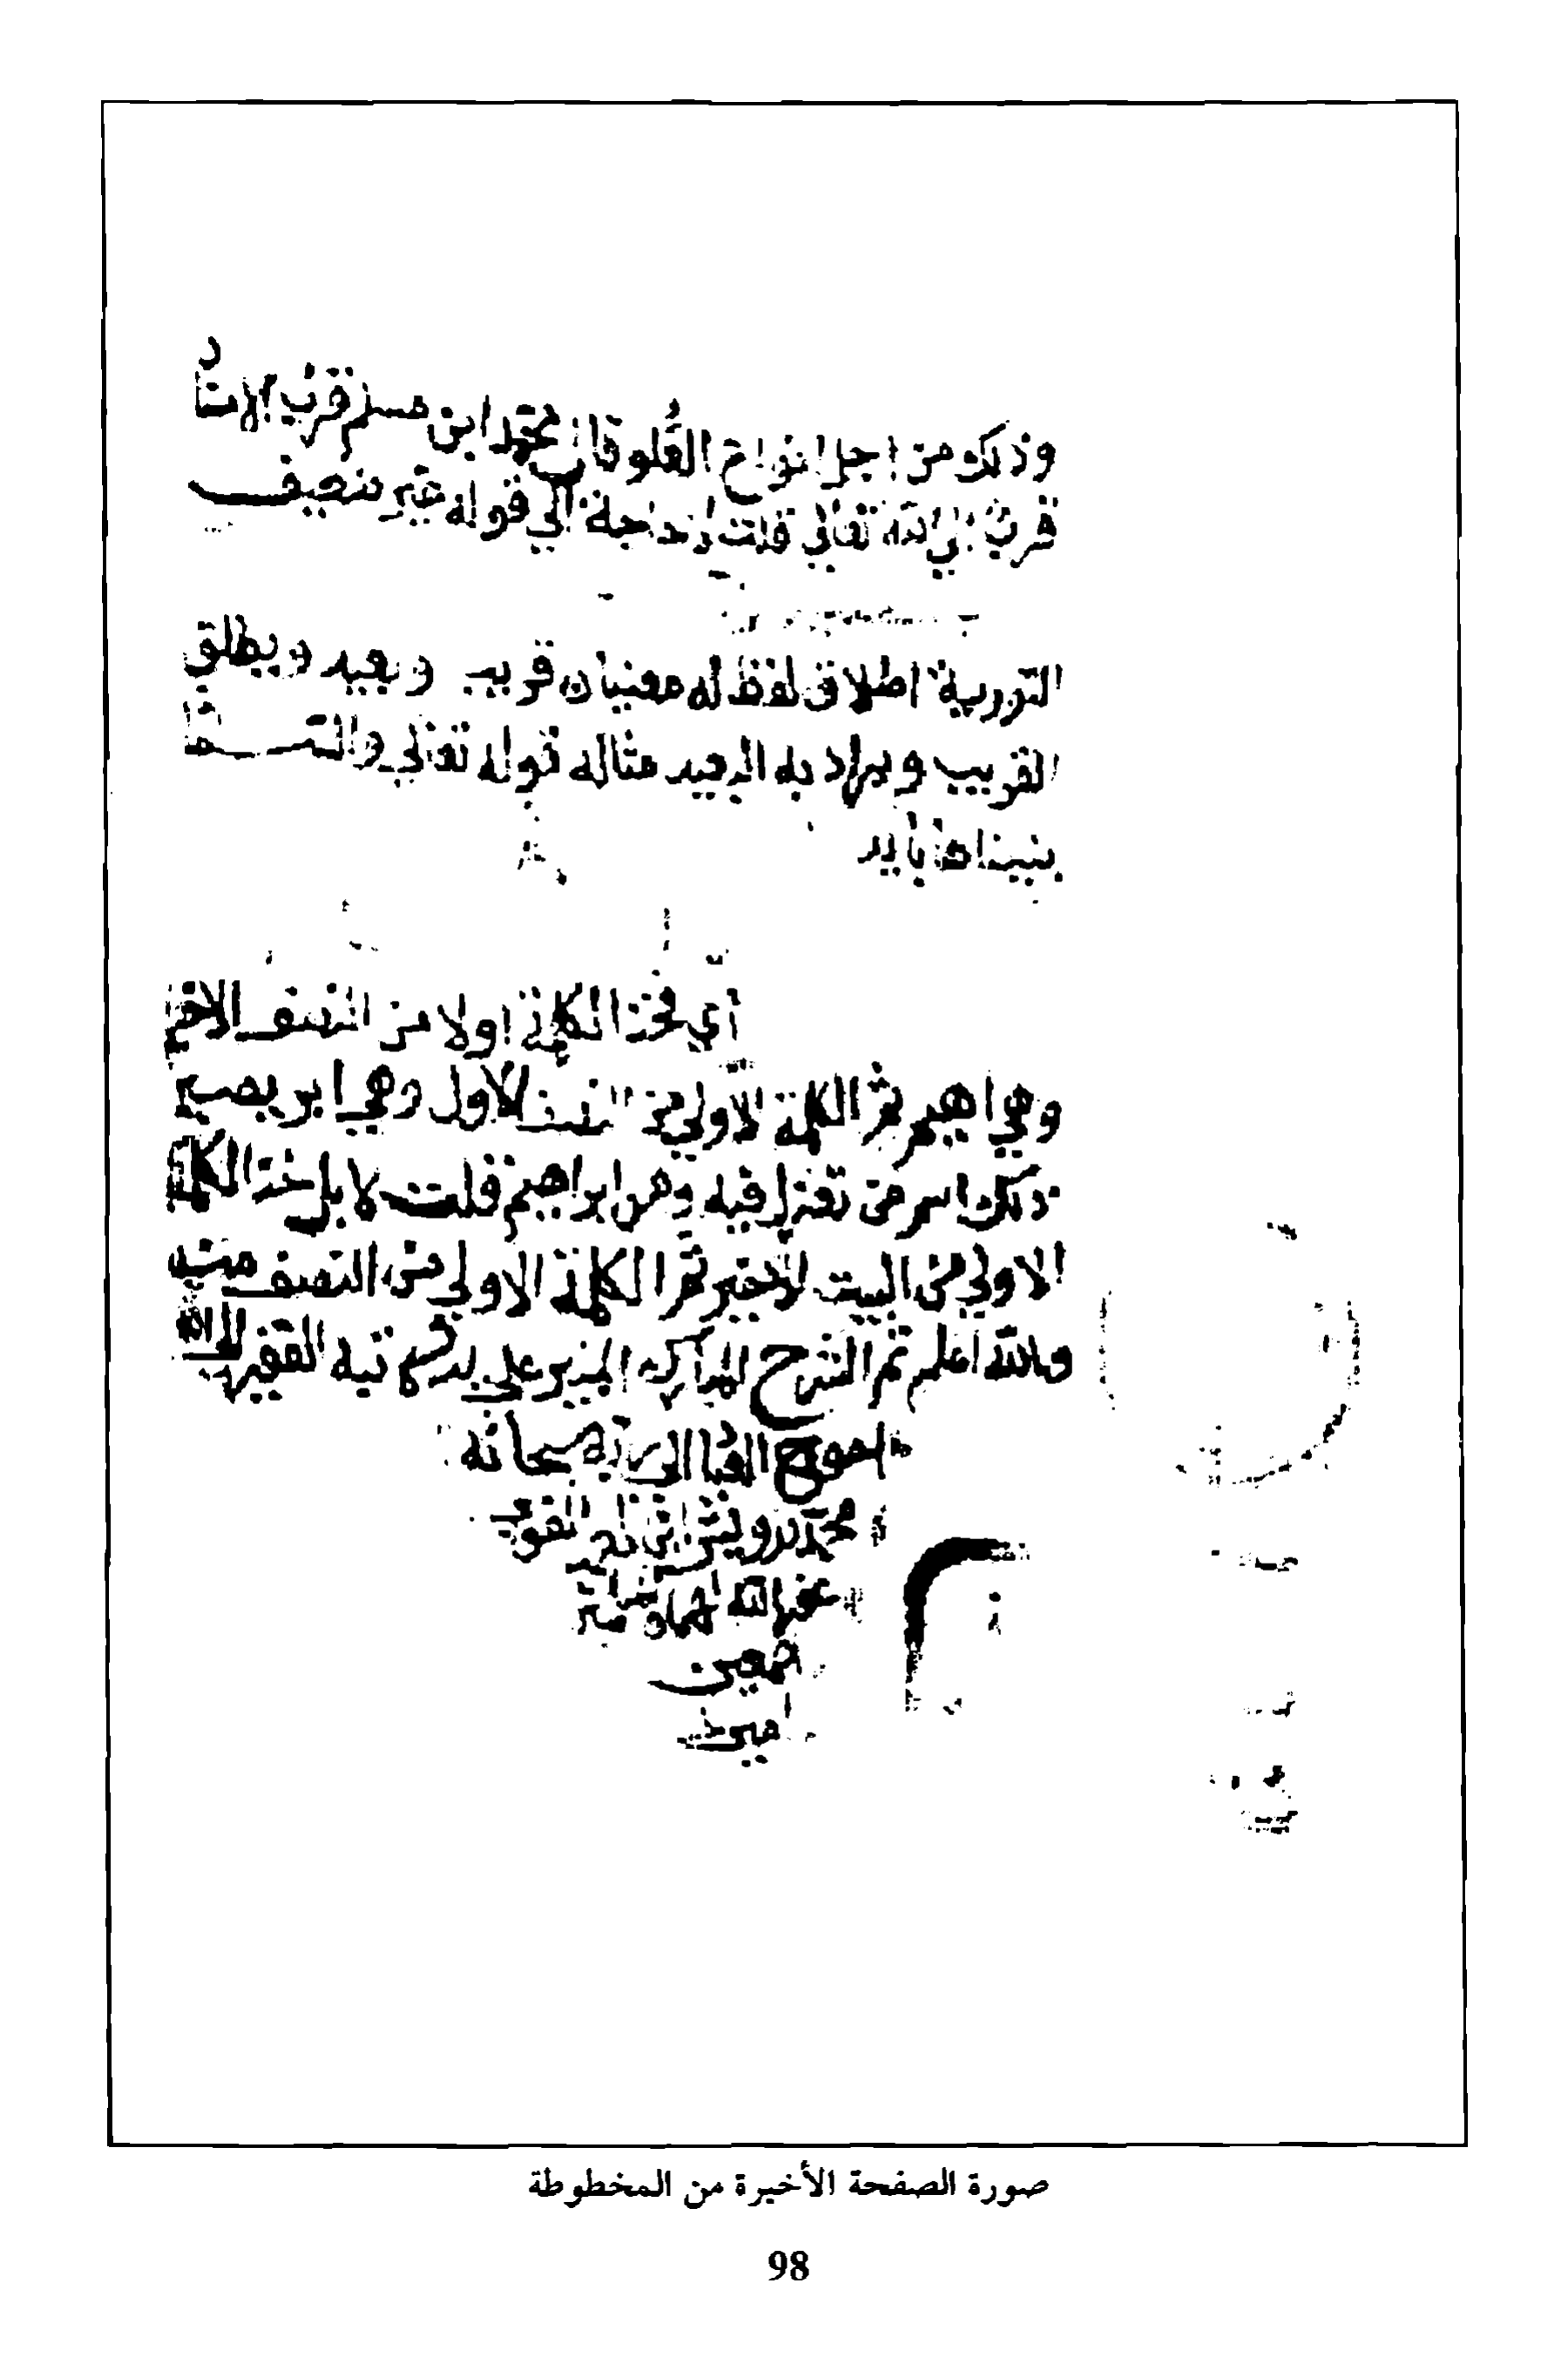 وذلك من اجل انواع العلو قال محمد ابن مسلم قرب الاسناد
قرب الى الله تعالى قلت لحاجة الي قوله غير ضعيف
التورية اطلاق لفظ له معنيان قريب وبعيد ويطلق
القريب ويراد به البعيد مثاله قوله تعالي والسماء
بنيناها بايد
أي فخذ الكلمة اولا من النصف الاخير
وهي اهيم ثم الكلمة الاولي من النصف الاول وهي ابر يصير
ذلك اسم من تغزل فيه وهو ابراهيم قلت لا بل خذ الكلمة
الاولي من البيت الاخير ثم الكلمة الاولي من النصف منه
والله اعلم تم الشرح المبارك علي يد كاتبه الفقير
احوج العباد الي سبحانه
محمد درويش
غفر الله لهما وللمسلمين
اجمعين
امين
صورة الصفحة الأخيرة من المخطوطة
98